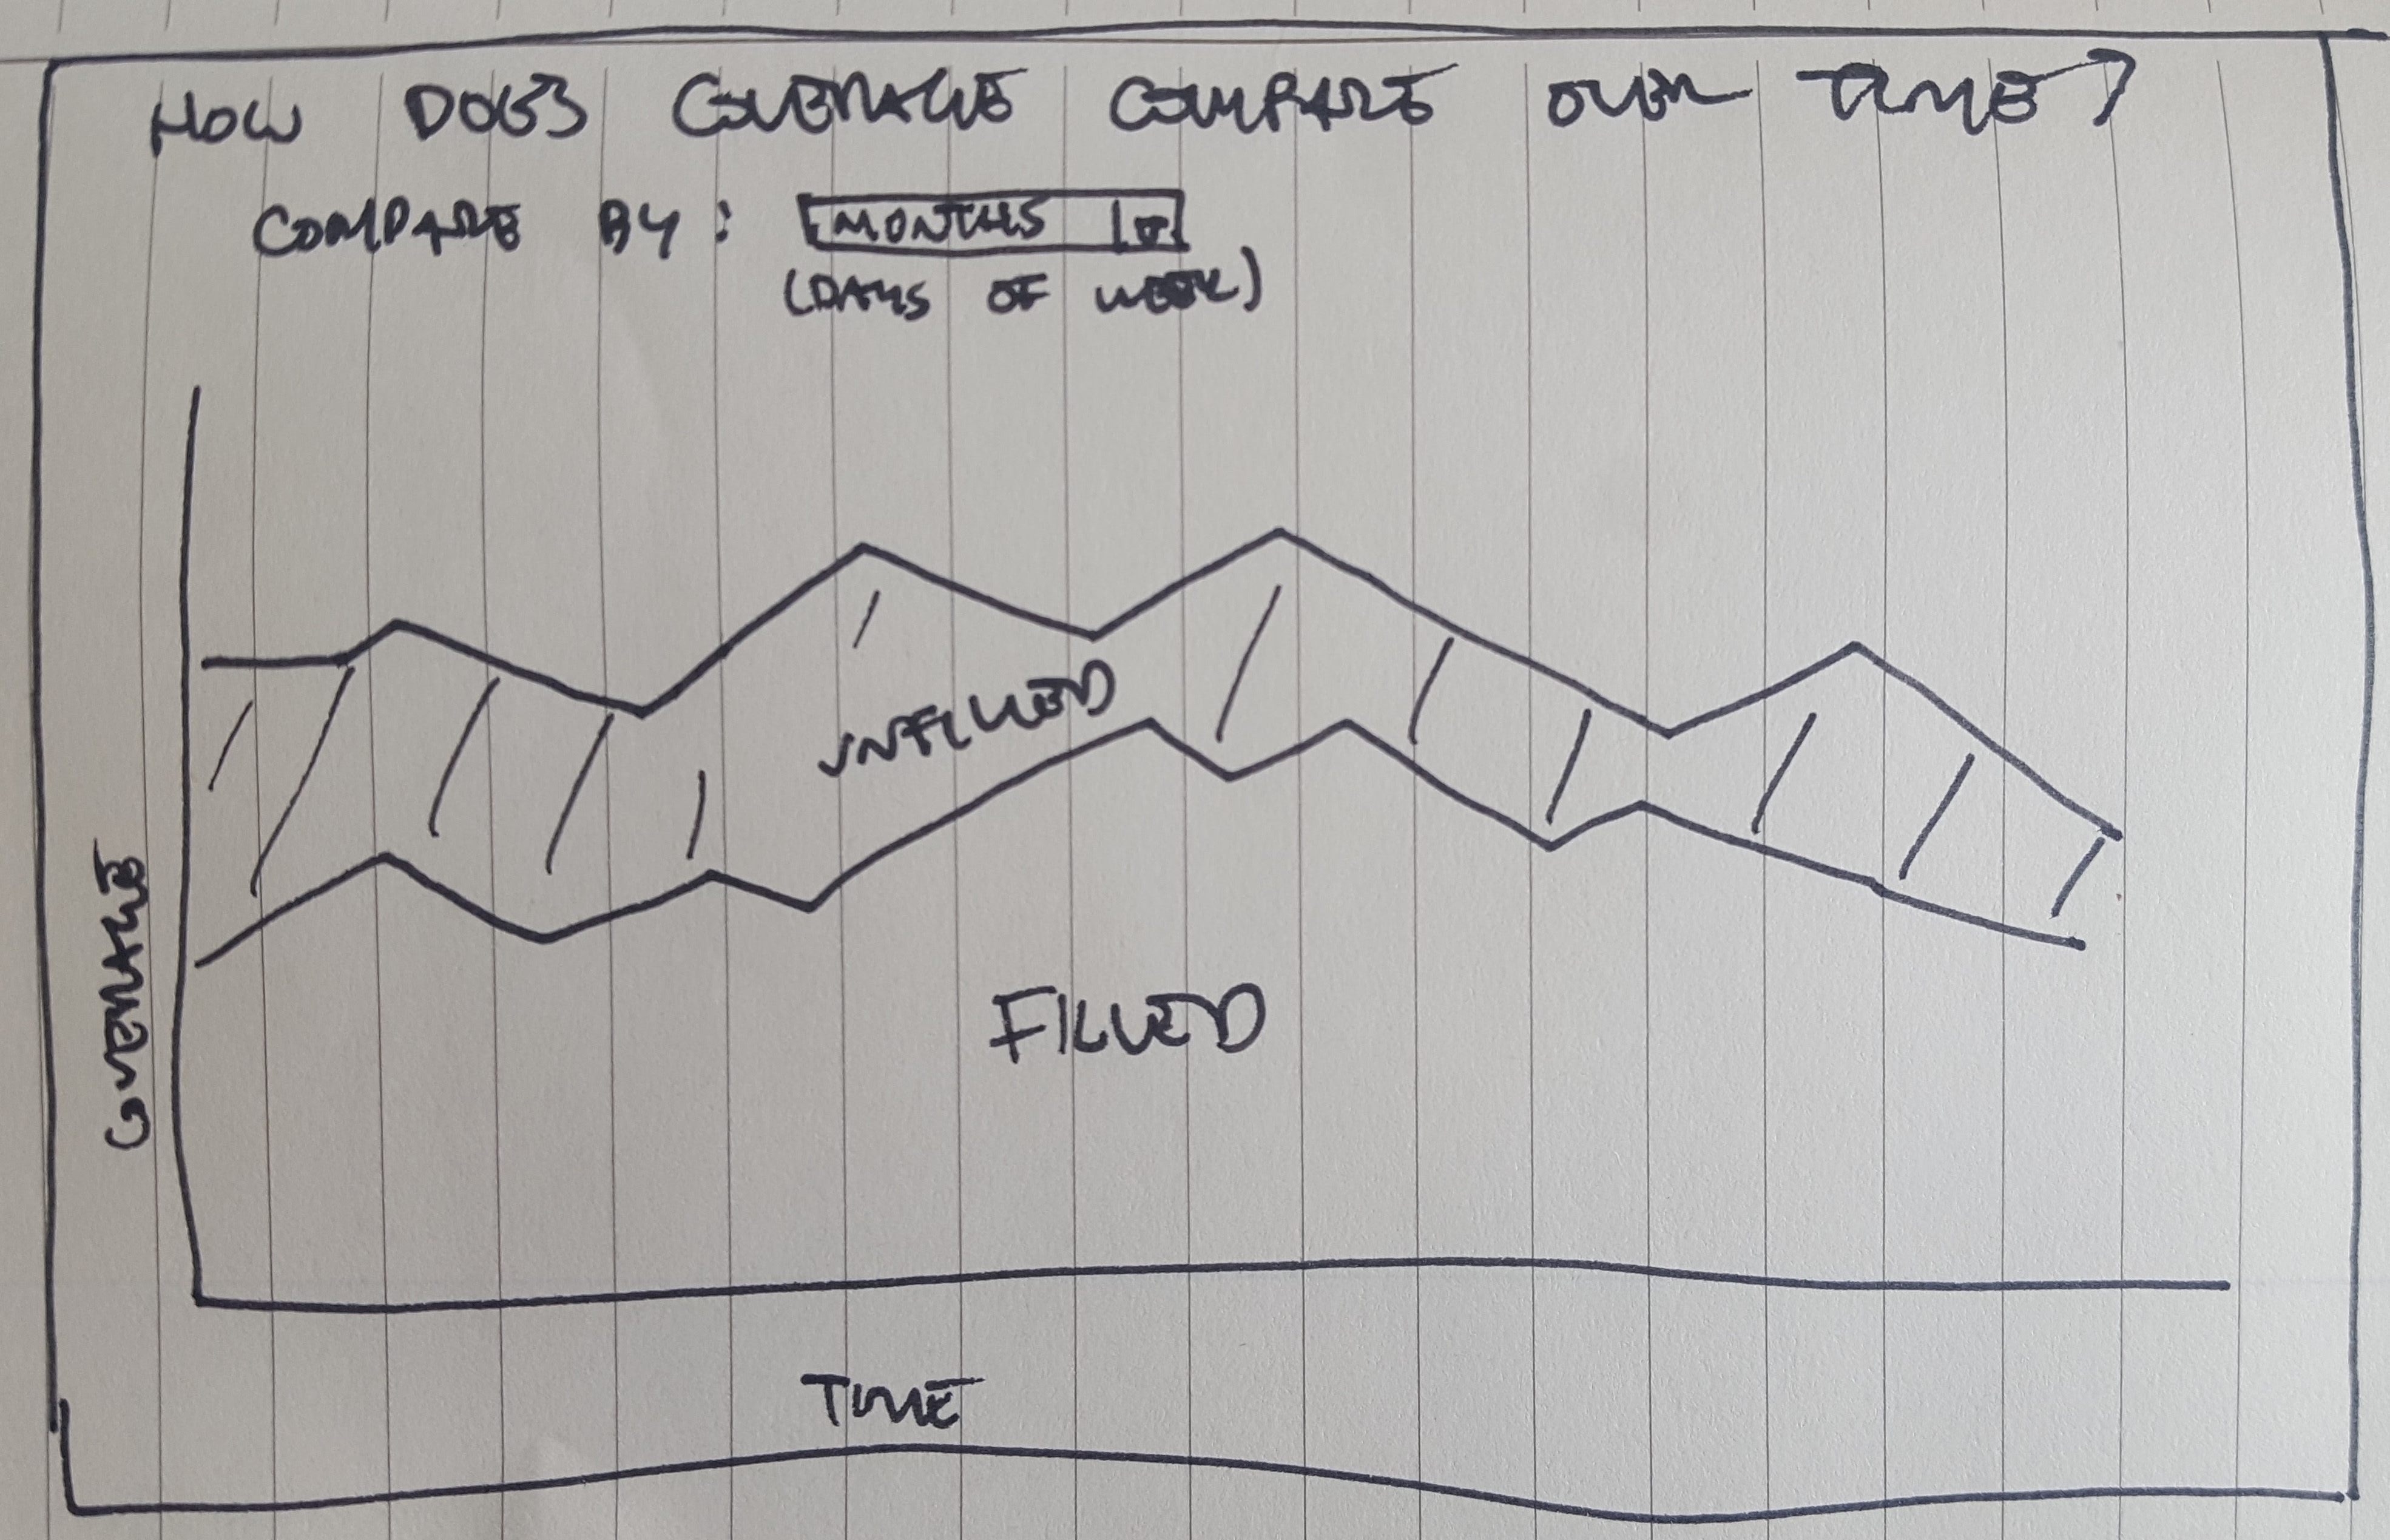 HOW DOES COVERAGE COMPARE OVER TIME?
COMPARE BY: MONTHS
(DAYS OF WEEK)
UNFILLED
FILLED
COVERAGE
TIME